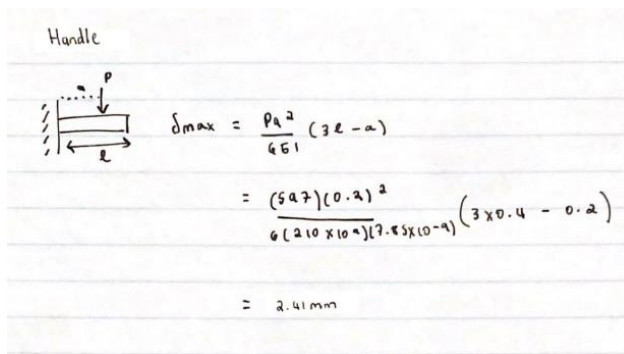 Handle
P
a
l
δmax = Pa² / 6EI (3l - a)
= (597)(0.2)² / 6(210 x 10⁹)(7.85x10-9) (3 x 0.4 - 0.2)
= 2.41mm